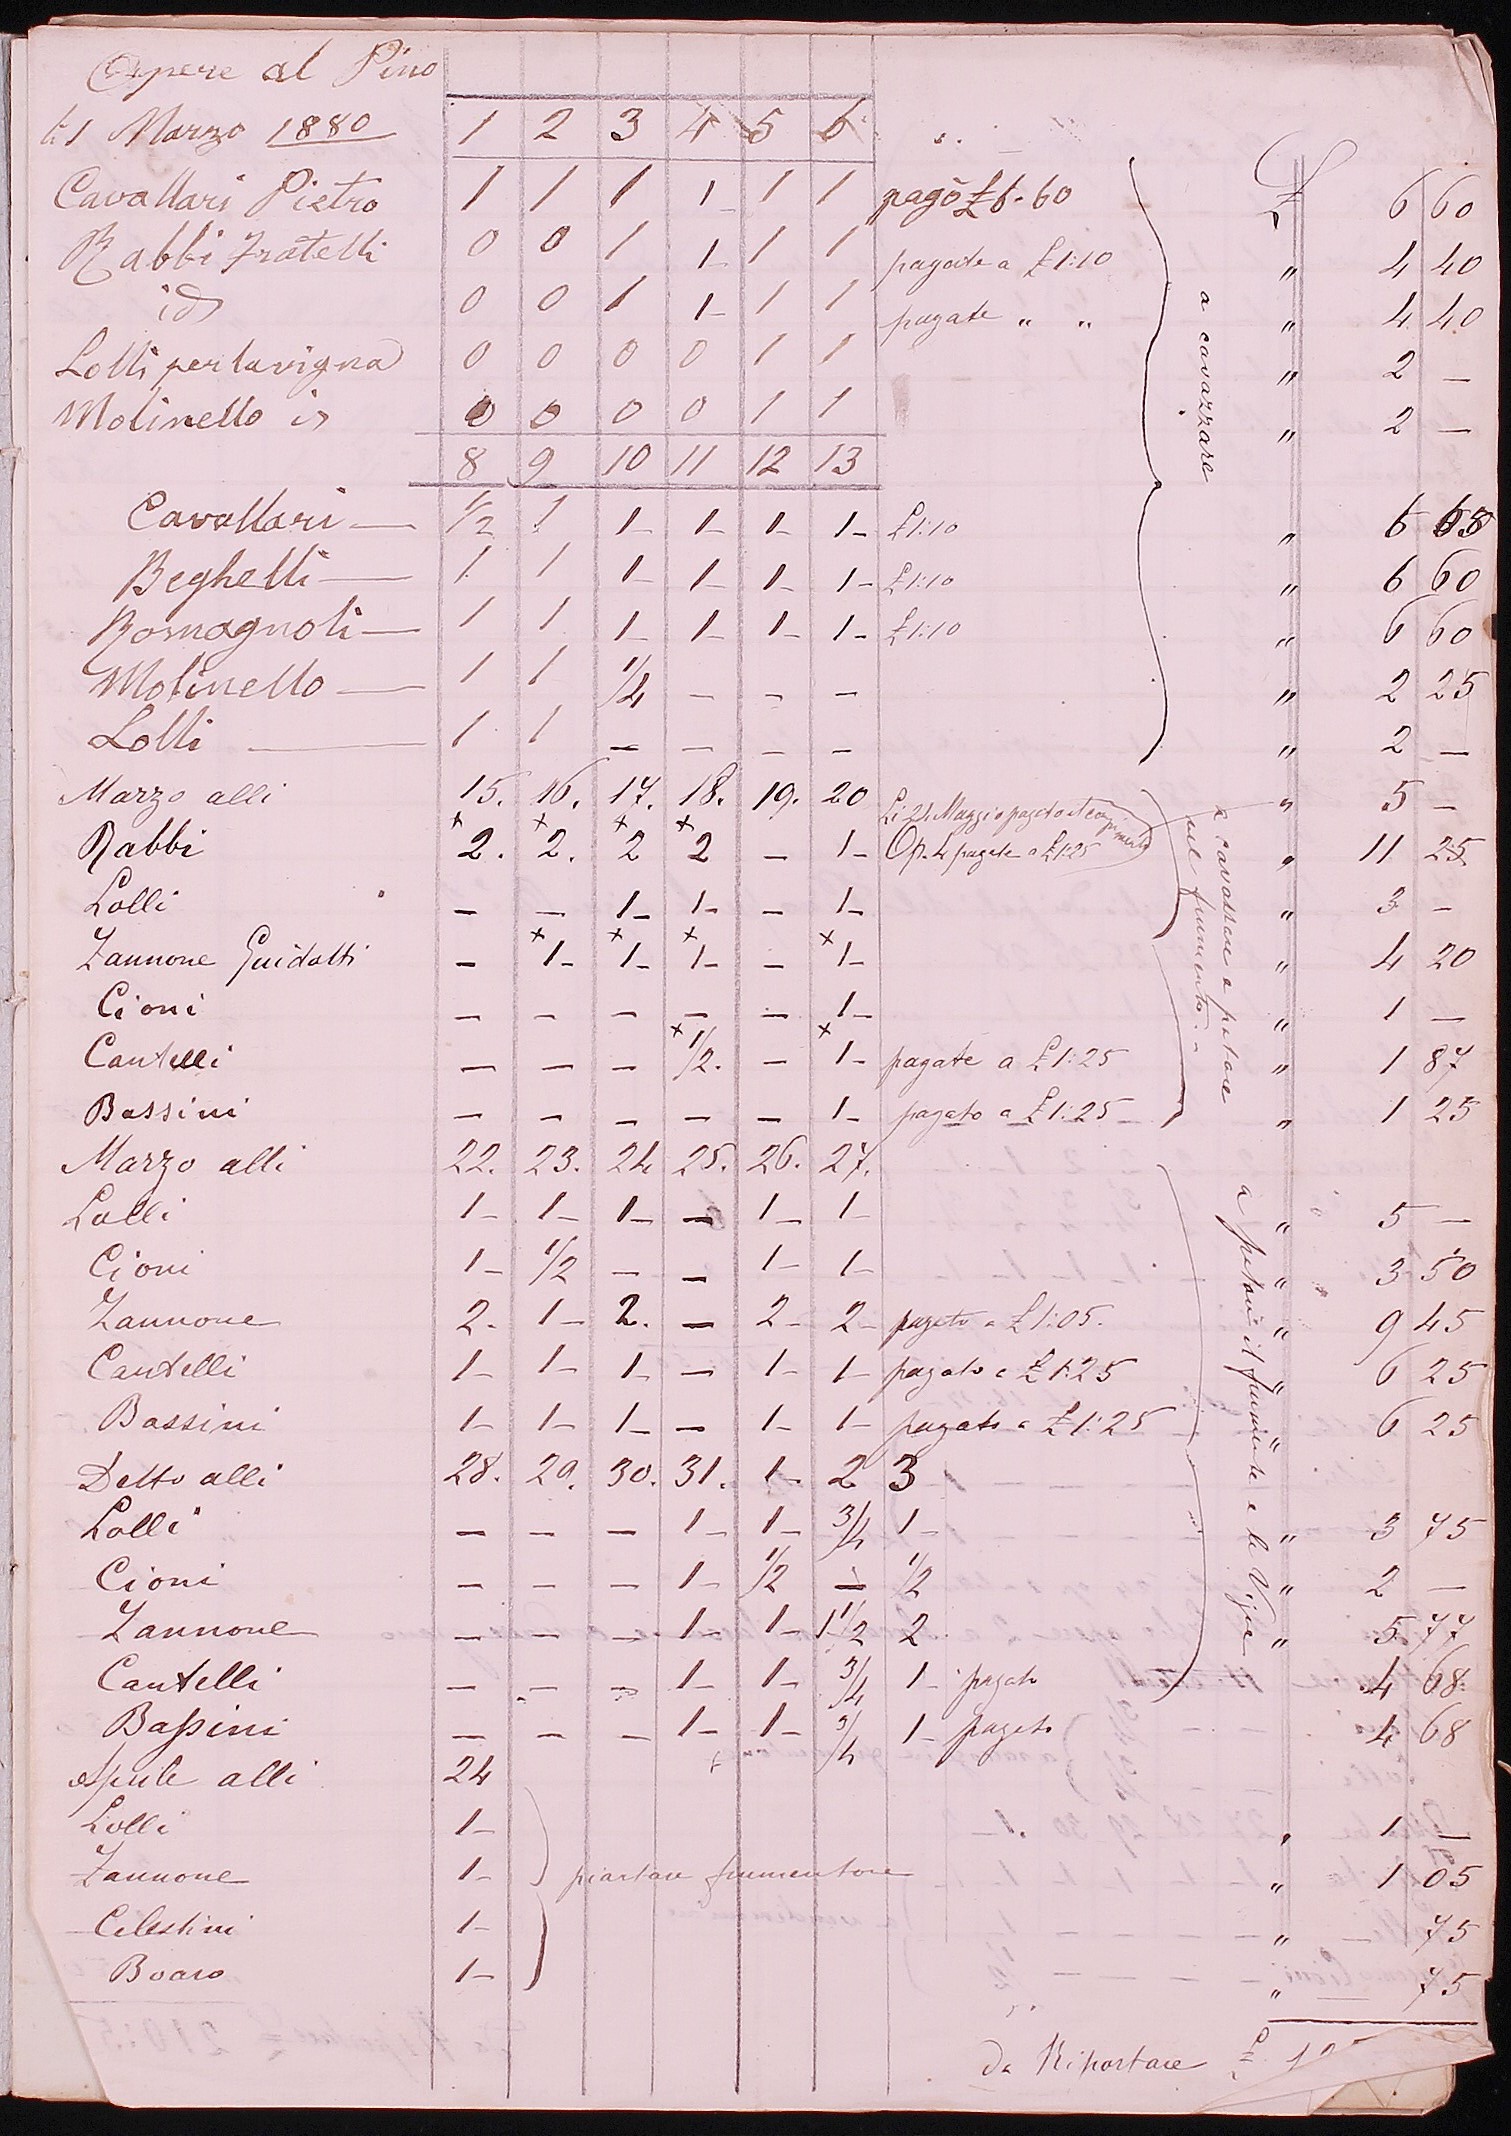 Opere al Pino
li 1 Marzo 1880 1 2 3 4 5 6
Cavallari Pietro 1 1 1 1 1 1 pagò £ 6. 60 £ 6 60
Rabbi Fratelli 0 0 1 1 1 1 pagate a £ 1:10 " 4 40
id 0 0 1 1 1 1 pagate " " " 4 40
Lolli per la vigna 0 0 0 0 1 1 " 2 —
Molinello id 0 0 0 0 1 1 " 2 —
a cavazzare
8 9 10 11 12 13
Cavallari — 1/2 1 1 – 1 – 1 – 1 – £ 1:10 " 6
Beghelli — 1 1 1 – 1 – 1 – 1 – £ 1:10 " 6 60
Romagnoli — 1 1 1 – 1 – 1 – 1 – £ 1:10 " 6 60
Molinello — 1 1 1/4 – – – " 2 25
Lolli — 1 1 – – – – " 2 —
Marzo alli 15. 16. 17. 18. 19. 20 Li 24 Maggio pagato " 5 –
Rabbi 2. 2. 2 2 – 1 – Op. 4 pagate a £ 1:25 " 11 25
Lolli – – 1 – 1 – – 1 – " 3 –
Zannone Guidotti – 1 – 1 – 1 – – 1 – " 4 20
Cioni – – – – – 1 – " 1 —
Cantelli – – – 1/2. – 1 – pagate a £ 1:25 " 1 87
Bassini – – – – – 1 – pagato a £ 1:25 – " 1 25
a cavazzare e
nel frumento
Marzo alli 22. 23. 24 25. 26. 27.
Lolli 1 – 1 – 1 – – 1 – 1 – " 5 —
Cioni 1 – 1/2 – – 1 – 1 – " 3 50
Zannone 2. 1 – 2. – 2 – 2 – pagato a £ 1:05. " 9 45
Cantelli 1 – 1 – 1 – – 1 – 1 – pagato a £ 1:25 " 6 25
Bassini 1 – 1 – 1 – – 1 – 1 – pagato a £ 1:25 " 6 25
Detto alli 28. 29. 30. 31. 1. 2 3
Lolli – – – 1 – 1 – 3/4 1 – " 3 75
Cioni – – – 1 – 1/2 – 1/2 " 2 —
Zannone – – – 1 – 1 – 1 1/2 2 " 5 77
Cantelli – – – 1 – 1 – 3/4 1 – pagato 4 68
Bassini – – – 1 – 1 – 3/4 1 – pagato 4 68
il frumento e le
Aprile alli 24
Lolli 1 – " 1 —
Zannone 1 – piantare frumentone " 1 05
Celestini 1 – " 75
Boaro 1 – " 75
da Riportare